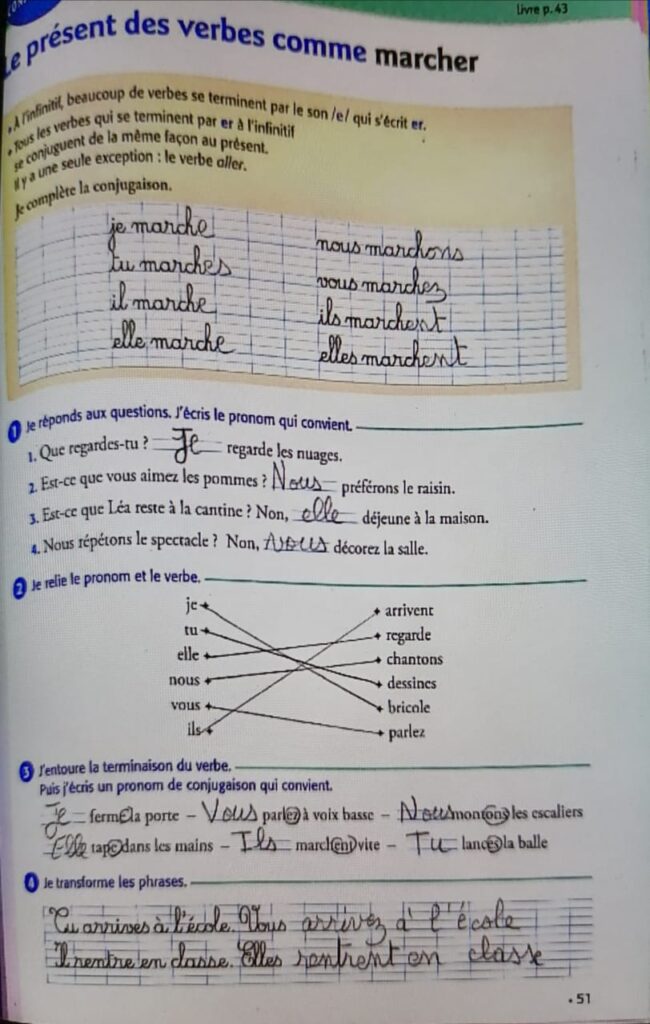 Livre p. 43
Le présent des verbes comme marcher
• À l'infinitif, beaucoup de verbes se terminent par le son /e/ qui s'écrit er.
• Tous les verbes qui se terminent par er à l'infinitif
se conjuguent de la même façon au présent.
Il y a une seule exception : le verbe aller.
Je complète la conjugaison.
je marche nous marchons
tu marches vous marchez
il marche ils marchent
elle marche elles marchent
1 Je réponds aux questions. J'écris le pronom qui convient.
1. Que regardes-tu ? Je regarde les nuages.
2. Est-ce que vous aimez les pommes ? Nous préférons le raisin.
3. Est-ce que Léa reste à la cantine ? Non, elle déjeune à la maison.
4. Nous répétons le spectacle ? Non, vous décorez la salle.
2 Je relie le pronom et le verbe.
je arrivent
tu regarde
elle chantons
nous dessines
vous bricole
ils parlez
3 J'entoure la terminaison du verbe.
Puis j'écris un pronom de conjugaison qui convient.
Je ferme la porte – Vous parlez à voix basse – Nous montons les escaliers
Elle tape dans les mains – Ils marchent vite – Tu lances la balle
4 Je transforme les phrases.
Tu arrives à l'école. Vous arrivez à l'école
Il rentre en classe. Elles rentrent en classe
• 51